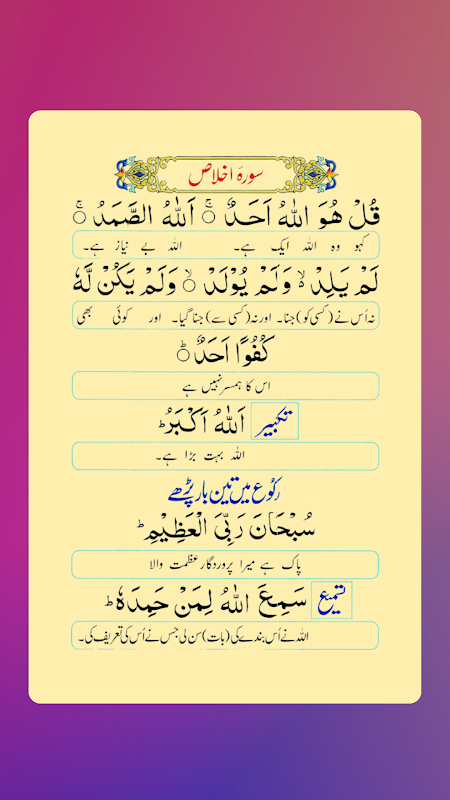 سورۂ اخلاص
قُلْ هُوَ اللّٰهُ اَحَدٌ ۚ اَللّٰهُ الصَّمَدُ ۚ
کہو وہ اللہ ایک ہے۔ اللہ بے نیاز ہے۔
لَمْ يَلِدْ ۙ وَلَمْ يُوْلَدْ ۙ وَلَمْ يَكُنْ لَّهٗ
نہ اُس نے (کسی کو) جنا۔ اور نہ (کسی سے) جنا گیا۔ اور کوئی بھی
كُفُوًا اَحَدٌ ؕ
اس کا ہمسر نہیں ہے
تکبیر اَللّٰهُ اَكْبَرُ ؕ
اللہ بہت بڑا ہے۔
رکوع میں تین بار پڑھے
سُبْحَانَ رَبِّيَ الْعَظِيْمِ ؕ
پاک ہے میرا پروردگار عظمت والا
تسمیع سَمِعَ اللّٰهُ لِمَنْ حَمِدَهٗ ؕ
اللہ نے اُس بندے کی (بات) سن لی جس نے اُس کی تعریف کی۔